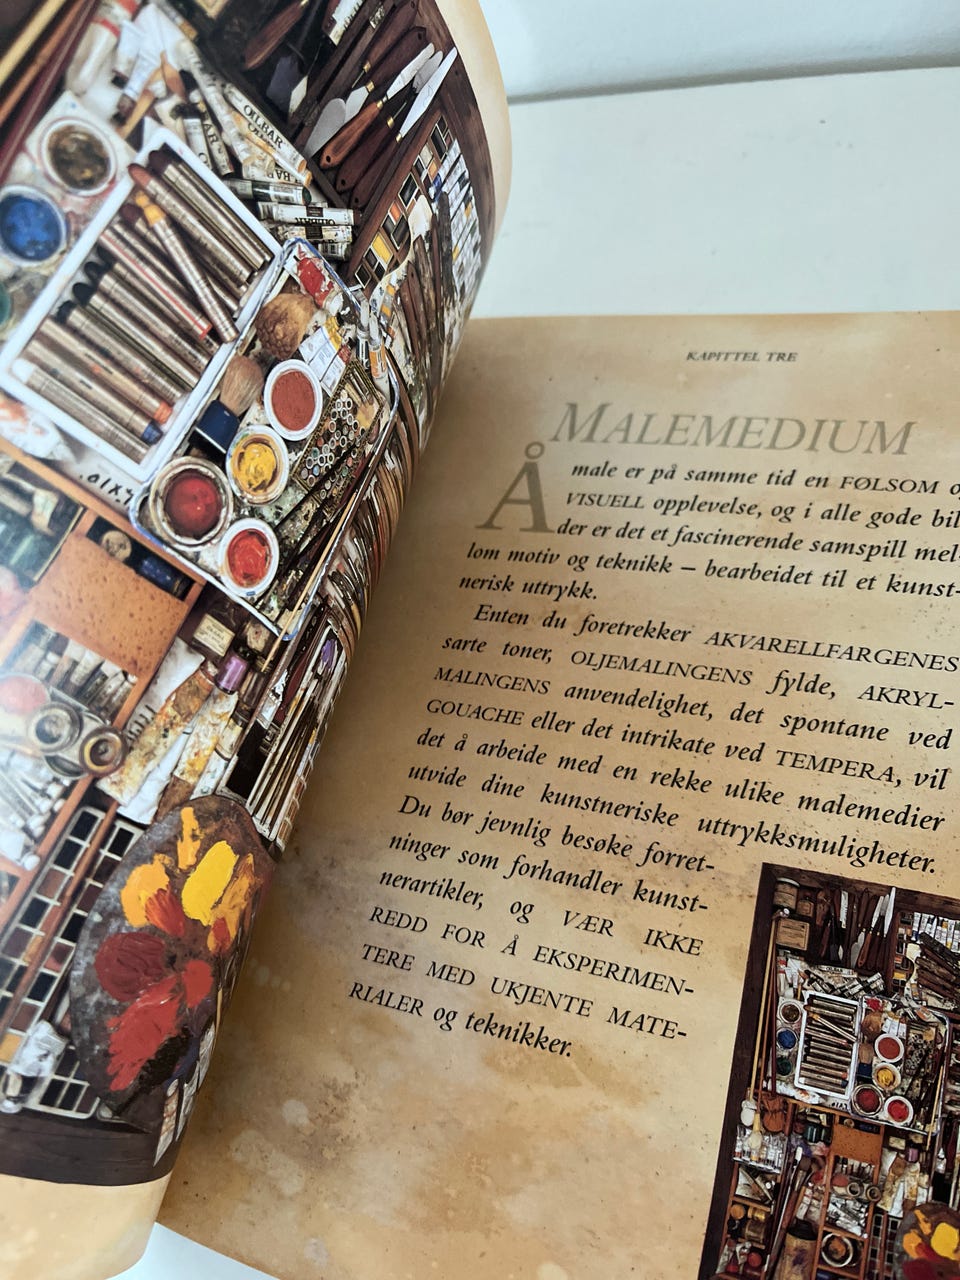 OILBAR
KAPITTEL TRE
MALEMEDIUM
Å male er på samme tid en FØLSOM
VISUELL opplevelse, og i alle gode bil-
der er det et fascinerende samspill mel-
lom motiv og teknikk – bearbeidet til et kunst-
nerisk uttrykk.
Enten du foretrekker AKVARELLFARGENES
sarte toner, OLJEMALINGENS fylde, AKRYL-
MALINGENS anvendelighet, det spontane ved
GOUACHE eller det intrikate ved TEMPERA, vil
det å arbeide med en rekke ulike malemedier
utvide dine kunstneriske uttrykksmuligheter.
Du bør jevnlig besøke forret-
ninger som forhandler kunst-
nerartikler, og VÆR IKKE
REDD FOR Å EKSPERIMEN-
TERE MED UKJENTE MATE-
RIALER og teknikker.